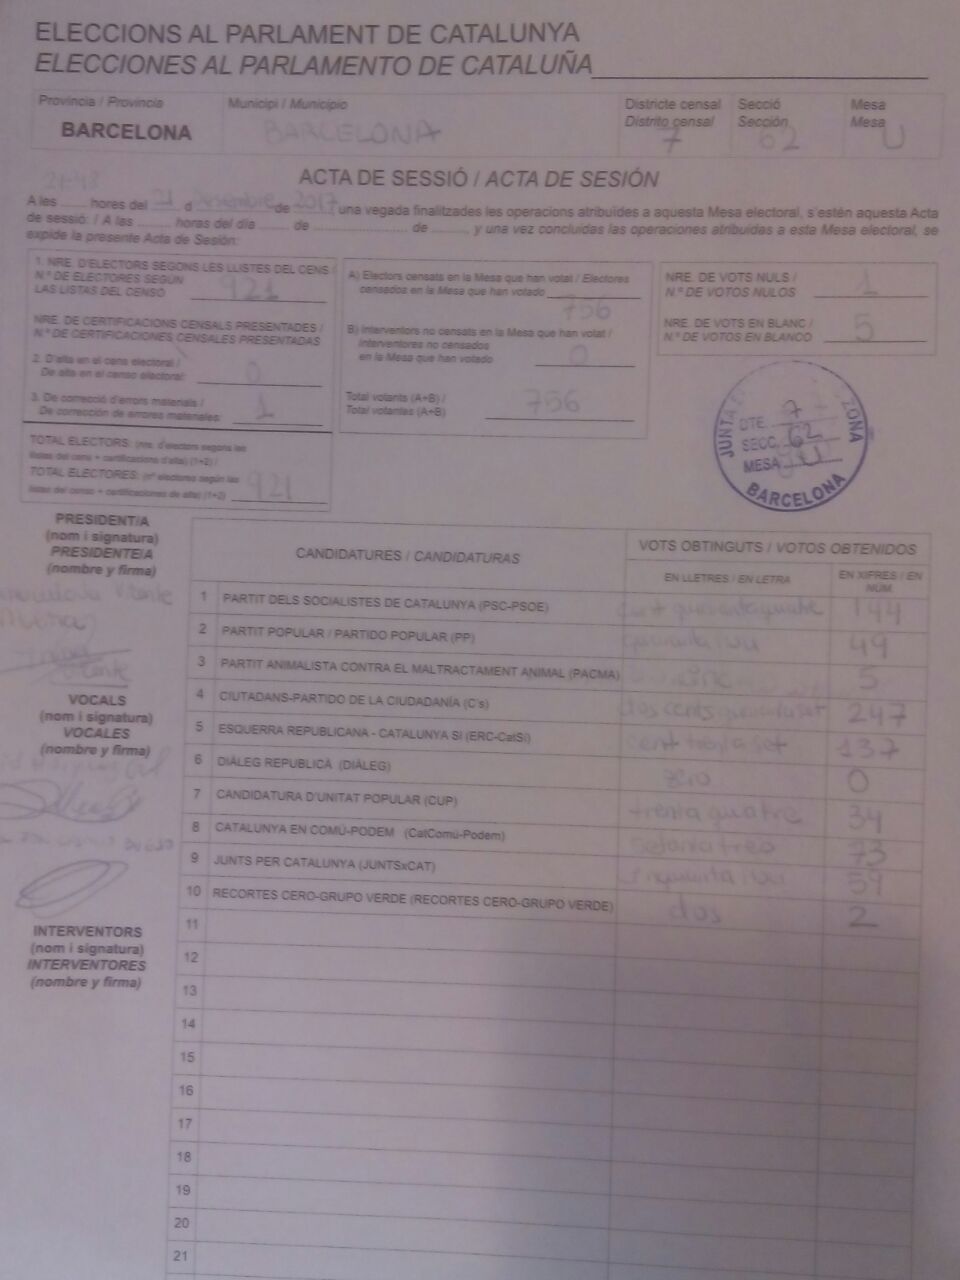 ELECCIONS AL PARLAMENT DE CATALUNYA
ELECCIONES AL PARLAMENTO DE CATALUÑA
Provincia / Provincia
BARCELONA
Municipi / Municipio
BARCELONA
Districte censal
Distrito censal
7
Secció
Sección
62
Mesa
Mesa
U
ACTA DE SESSIÓ / ACTA DE SESIÓN
A les hores del 21 d Desembre de 2017 una vegada finalitzades les operacions atribuïdes a aquesta Mesa electoral, s'estén aquesta Acta
de sessió: / A las ........ horas del día ........ de ........ de ........, y una vez concluidas las operaciones atribuidas a esta Mesa electoral, se
expide la presente Acta de Sesión:
1. NRE. D'ELECTORS SEGONS LES LLISTES DEL CENS /
N.º DE ELECTORES SEGÚN
LAS LISTAS DEL CENSO 921
NRE. DE CERTIFICACIONS CENSALS PRESENTADES /
N.º DE CERTIFICACIONES CENSALES PRESENTADAS
2. D'alta en el cens electoral /
De alta en el censo electoral: 0
3. De correcció d'errors materials /
De corrección de errores materiales: 1
TOTAL ELECTORS: (nre. d'electors segons les
llistes del cens + certificacions d'alta) (1+2) /
TOTAL ELECTORES: (nº electores según las
listas del censo + certificaciones de alta) (1+2) 921
A) Electors censats en la Mesa que han votat / Electores
censados en la Mesa que han votado
756
B) Interventors no censats en la Mesa que han votat /
Interventores no censados
en la Mesa que han votado 0
Total votants (A+B) /
Total votantes (A+B) 756
NRE. DE VOTS NULS /
N.º DE VOTOS NULOS 1
NRE. DE VOTS EN BLANC /
N.º DE VOTOS EN BLANCO 5
JUNTA E ZONA
DTE. 7
SECC. 62
MESA U
BARCELONA
PRESIDENT/A
(nom i signatura)
PRESIDENTE/A
(nombre y firma)
VOCALS
(nom i signatura)
VOCALES
(nombre y firma)
INTERVENTORS
(nom i signatura)
INTERVENTORES
(nombre y firma)
CANDIDATURES / CANDIDATURAS
VOTS OBTINGUTS / VOTOS OBTENIDOS
EN LLETRES / EN LETRA
EN XIFRES / EN NÚM.
1 PARTIT DELS SOCIALISTES DE CATALUNYA (PSC-PSOE) cent quarantaquatre 144
2 PARTIT POPULAR / PARTIDO POPULAR (PP) quaranta nou 49
3 PARTIT ANIMALISTA CONTRA EL MALTRACTAMENT ANIMAL (PACMA) cinc 5
4 CIUTADANS-PARTIDO DE LA CIUDADANÍA (C's) dos cents quaranta set 247
5 ESQUERRA REPUBLICANA - CATALUNYA SÍ (ERC-CatSí) cent trenta set 137
6 DIÀLEG REPUBLICÀ (DIÀLEG) zero 0
7 CANDIDATURA D'UNITAT POPULAR (CUP) trenta quatre 34
8 CATALUNYA EN COMÚ-PODEM (CatComú-Podem) setanta tres 73
9 JUNTS PER CATALUNYA (JUNTSxCAT) cinquanta nou 59
10 RECORTES CERO-GRUPO VERDE (RECORTES CERO-GRUPO VERDE) dos 2
11
12
13
14
15
16
17
18
19
20
21